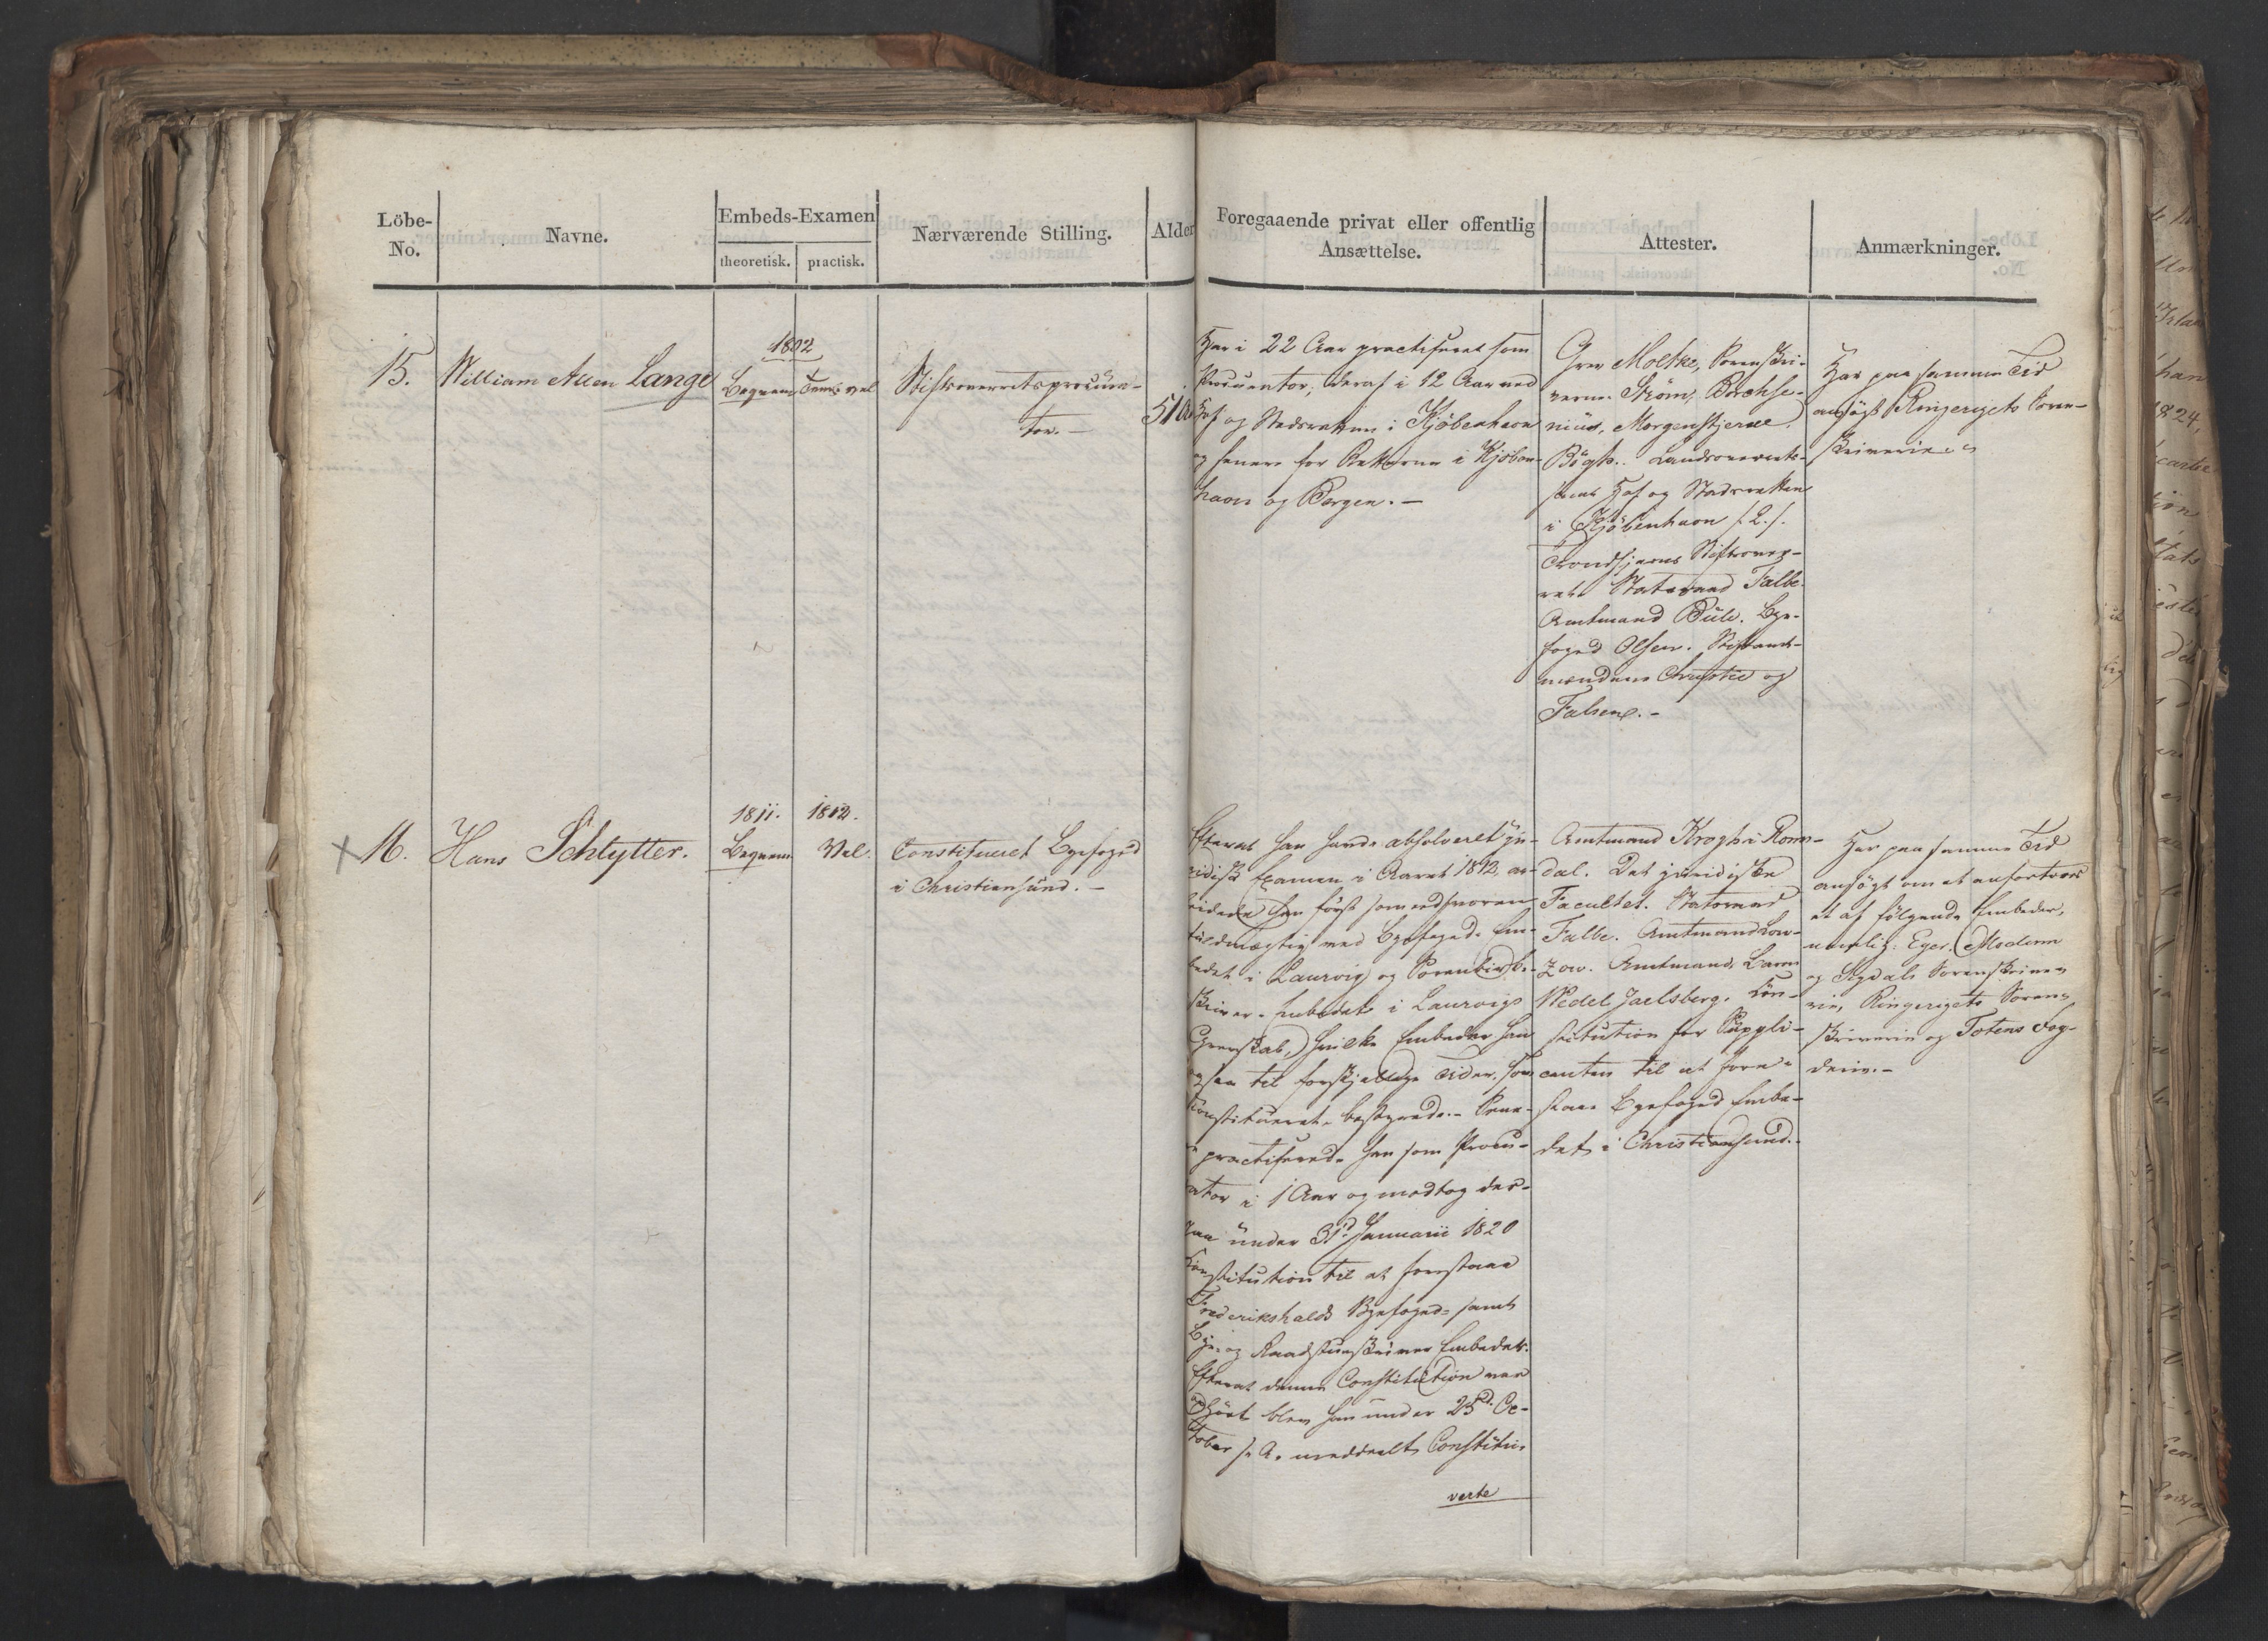 Löbe-
No.
Navne.
Embeds-Examen
theoretisk.
practisk.
Nærværende Stilling.
Alder
Foregaaende privat eller offentlig
Ansættelse.
Attester.
Anmærkninger.
15.
William Allen Lange
1802
Beqvem
Temi vel
Stiftsoverretsprocura-
tor. —
51 Aar
Har i 22 Aar practiseret som
Procurator, deraf i 12 Aar ved
Hof og Stadsretten i Kjöbenhavn
og senere for Retterne i Kjöben-
havn og Bergen. —
Grev Moltke, Sorenskri-
verne Ström,
Morgenstjerne,
Bögh. Landsoverrets-
samt Hof og Stadsretten
i Kjöbenhavn /: 2. :/.
Trondhjems Stiftsover-
ret. Statsraad Falbe.
Amtmand Bull. Bye-
foged Olsen. Stiftamt-
mændene Christie og
Falsen. —
Har paa samme Tid
ansögt Ringerigets Soren-
skriverie.
16.
Hans Schlytter.
1811.
1812.
Beqvem
Vel.
Constitueret Byefoged
i Christiansund. —
Efterat han havde absolveret ju-
ridisk Examen i Aaret 1812, ar-
beidede han först som edsvoren
fuldmægtig ved Byefoged Em-
bedet i Laurvig og Sorenbirk-
skriver-Embedet i Laurvigs
Grevskab, hvilke Embeder han
ogsaa til forskjellige Tider, som
Constitueret, bestyrede. – Sene-
re practiserede han som Procu-
rator i 1 Aar og modtog der-
paa under 31d Januarii 1820
Constitution til at forestaae
Frederikshalds Byefoged- samt
Bye- og Raadstueskriver Embedet.
Efterat denne Constitution var
ophört blev han under 25d Oc-
tober s. A. meddeelt Constitu-
verte
Amtmand Krogh i Roms-
dal. Det juridiske
Facultet. Statsraad
Falbe. Amtmand Low-
zow. Amtmand, Baron
Wedel Jarlsberg. Con-
stitution for Suppli-
canten til at fore-
staae Byefoged Embe-
det i Christiansund. –
Har paa samme Tid
ansögt om at anfortroes
et af fölgende Embeder,
nemlig: Eger, Modum
og Sigdals Sorenskrive-
rie, Ringerigets Soren-
skriverie og Totens Fog-
derie. –